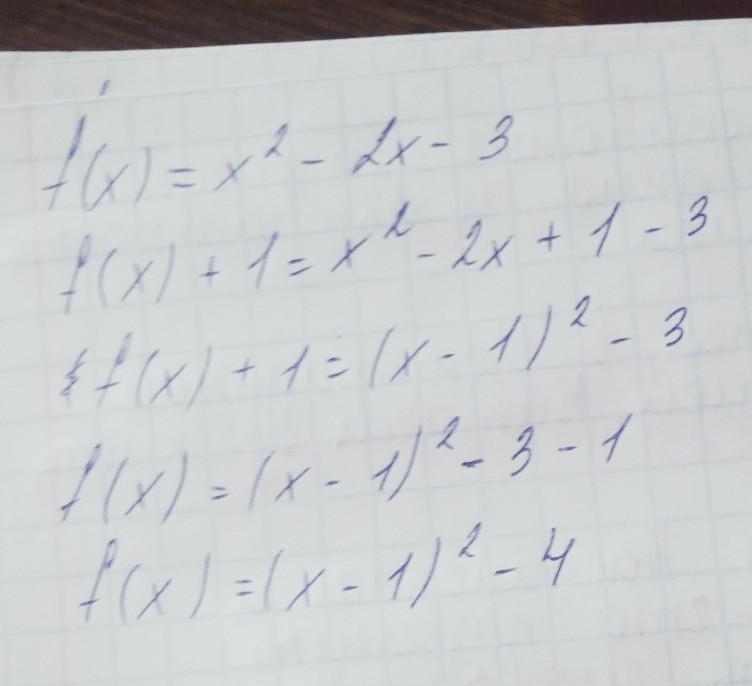 f(x) = x² - 2x - 3
f(x) + 1 = x² - 2x + 1 - 3
f(x) + 1 = (x - 1)² - 3
f(x) = (x - 1)² - 3 - 1
f(x) = (x - 1)² - 4